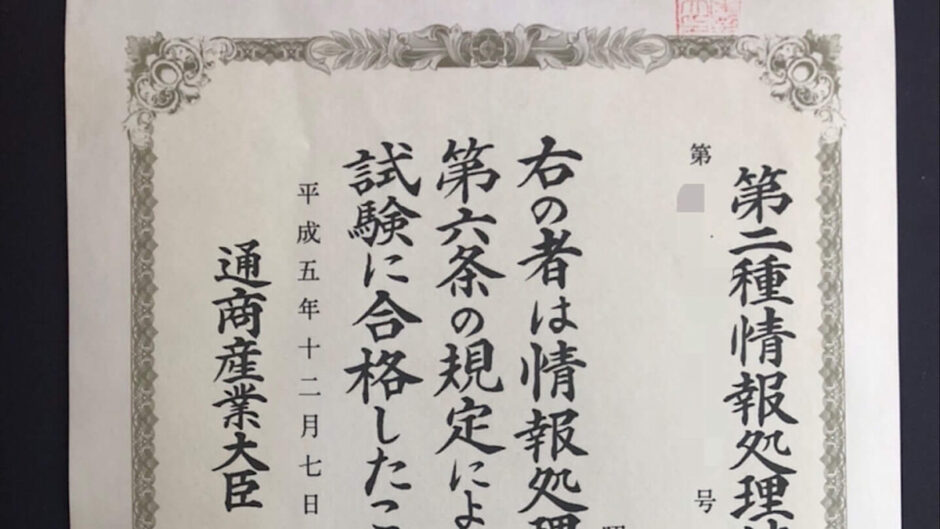 第二種情報処理技
第
号
右の者は情報処理
第六条の規定によ
試験に合格したこ
平成五年十二月七日
通商産業大臣